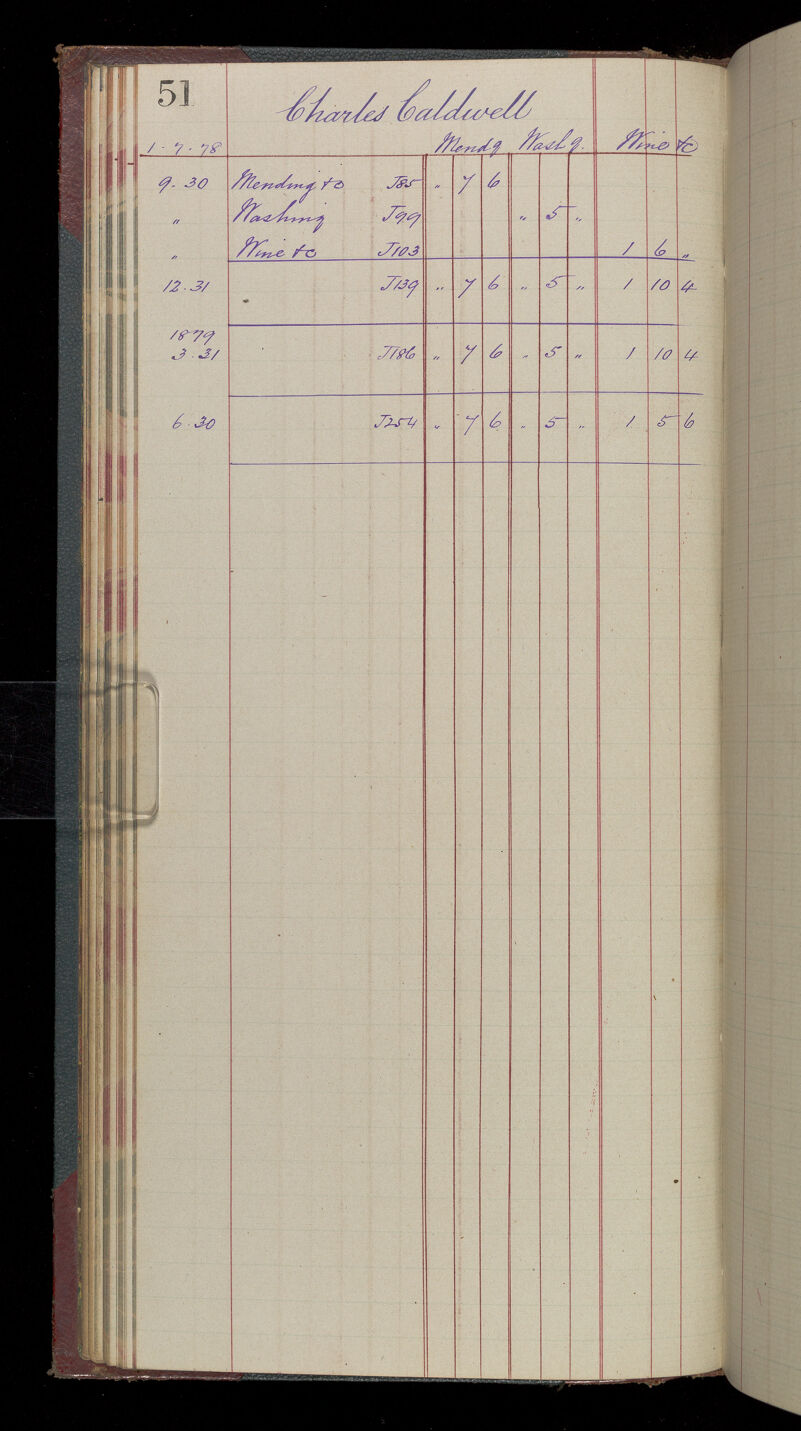 51
Charles Caldwell
1-7-78 Mendg Washg. Wine &c
9.30 Mending &c J85 " 7 6
" Washing J99 " 5 "
" Wine &c J103 1 6 "
12.31 J139 " 7 6 " 5 " 1 10 4
1879
3.31 J186 " 7 6 " 5 " 1 10 4
6.30 J254 " 7 6 " 5 " 1 5 6